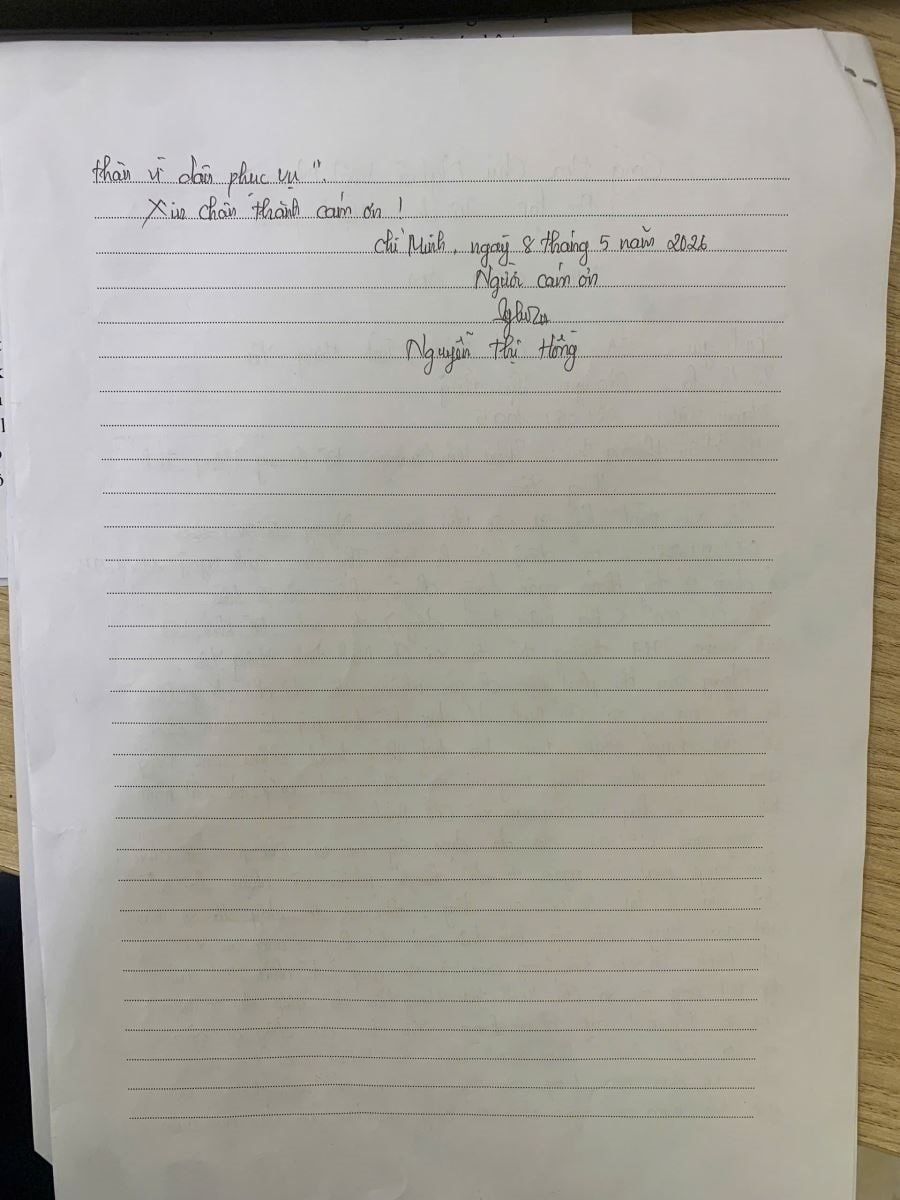 thần vì dân phục vụ".
Xin chân thành cám ơn!
Chí Minh, ngày 8 tháng 5 năm 2026
Người cám ơn
Nguyễn Thị Hồng